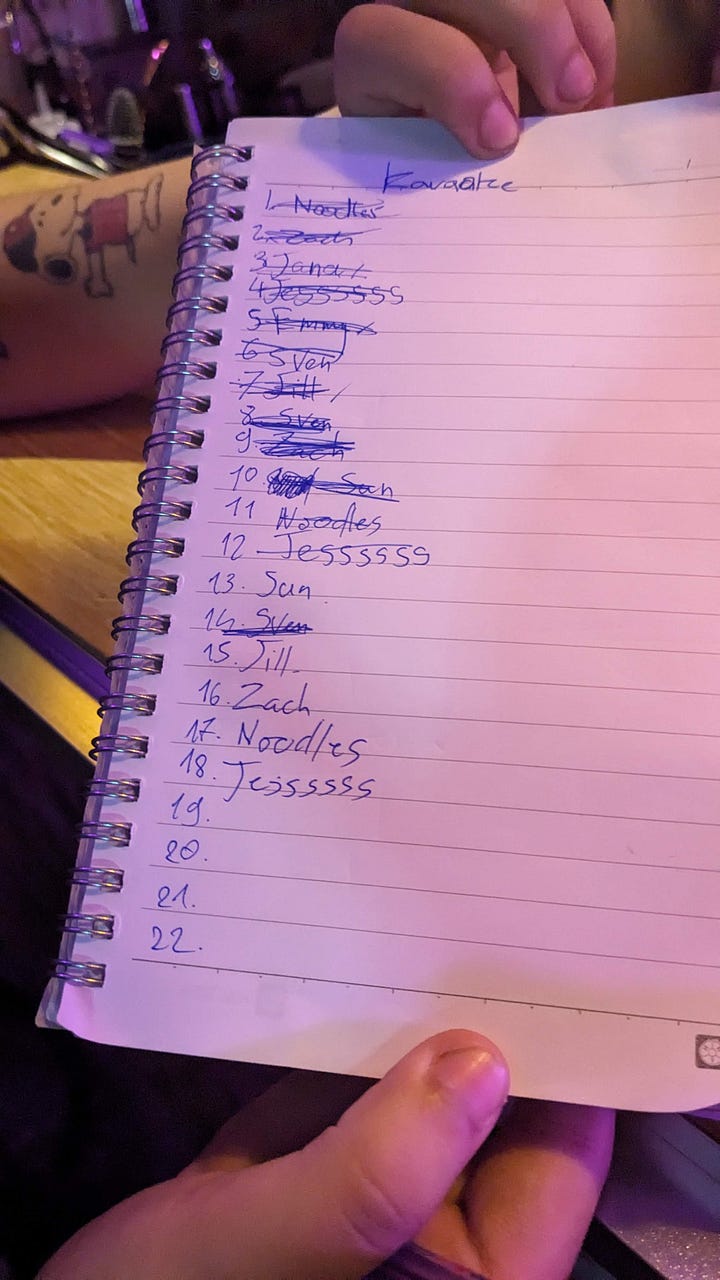 Karaoke
1. Noodles
2. Zach
3. Jana
4. Jessssss
5. Emmy
6. Sven
7. Jill
8. Sven
9. Zach
10. San
11 Noodles
12 Jessssss
13. San
14. Sven
15. Jill
16. Zach
17. Noodles
18. Jessssss
19.
20.
21.
22.